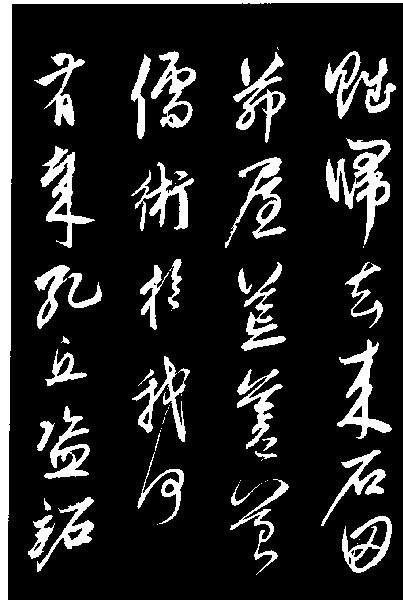 賦歸去來石田
茅屋荒蒼苔
儒術於我何
有哉孔丘盜跖